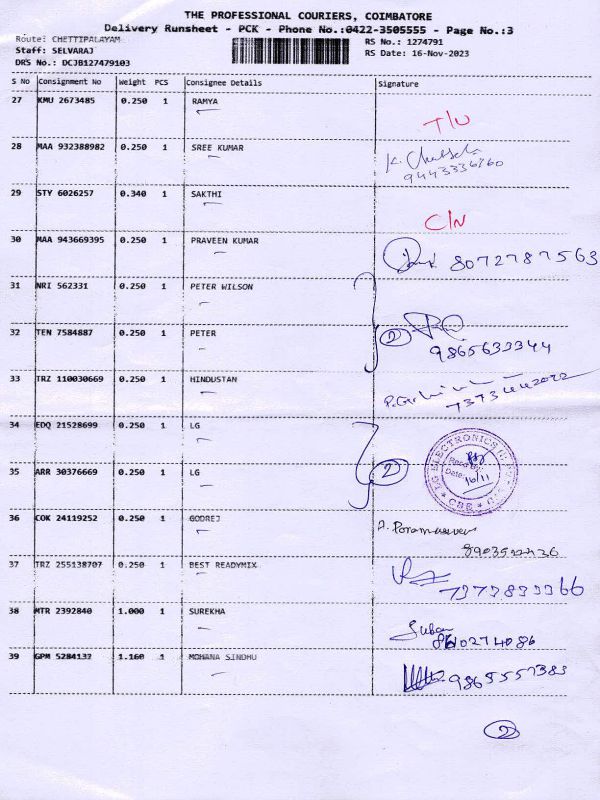 THE PROFESSIONAL COURIERS, COIMBATORE
Delivery Runsheet - PCK - Phone No.:0422-3505555 - Page No.:3
Route: CHETTIPALAYAM
RS No.: 1274791
Staff: SELVARAJ
RS Date: 16-Nov-2023
DRS No.: DCJB127479103
S No Consignment No Weight PCS Consignee Details Signature
27 KMU 2673485 0.250 1 RAMYA
T/U
28 MAA 932388982 0.250 1 SREE KUMAR
9443336860
29 STY 6026257 0.340 1 SAKTHI
C/N
30 MAA 943669395 0.250 1 PRAVEEN KUMAR
8072787563
31 NRI 562331 0.250 1 PETER WILSON
32 TEN 7584887 0.250 1 PETER
2
9865633344
33 TRZ 110030669 0.250 1 HINDUSTAN
7373442022
34 EDQ 21528699 0.250 1 LG
LG ELECTRONICS
Date: 16/11
CBE
35 ARR 30376669 0.250 1 LG
2
36 COK 24119252 0.250 1 GODREJ
37 TRZ 255138707 0.250 1 BEST READYMIX
7373833366
38 MTR 2392840 1.000 1 SUREKHA
39 GPM 5284132 1.160 1 MOHANA SINDHU
9865557383
2